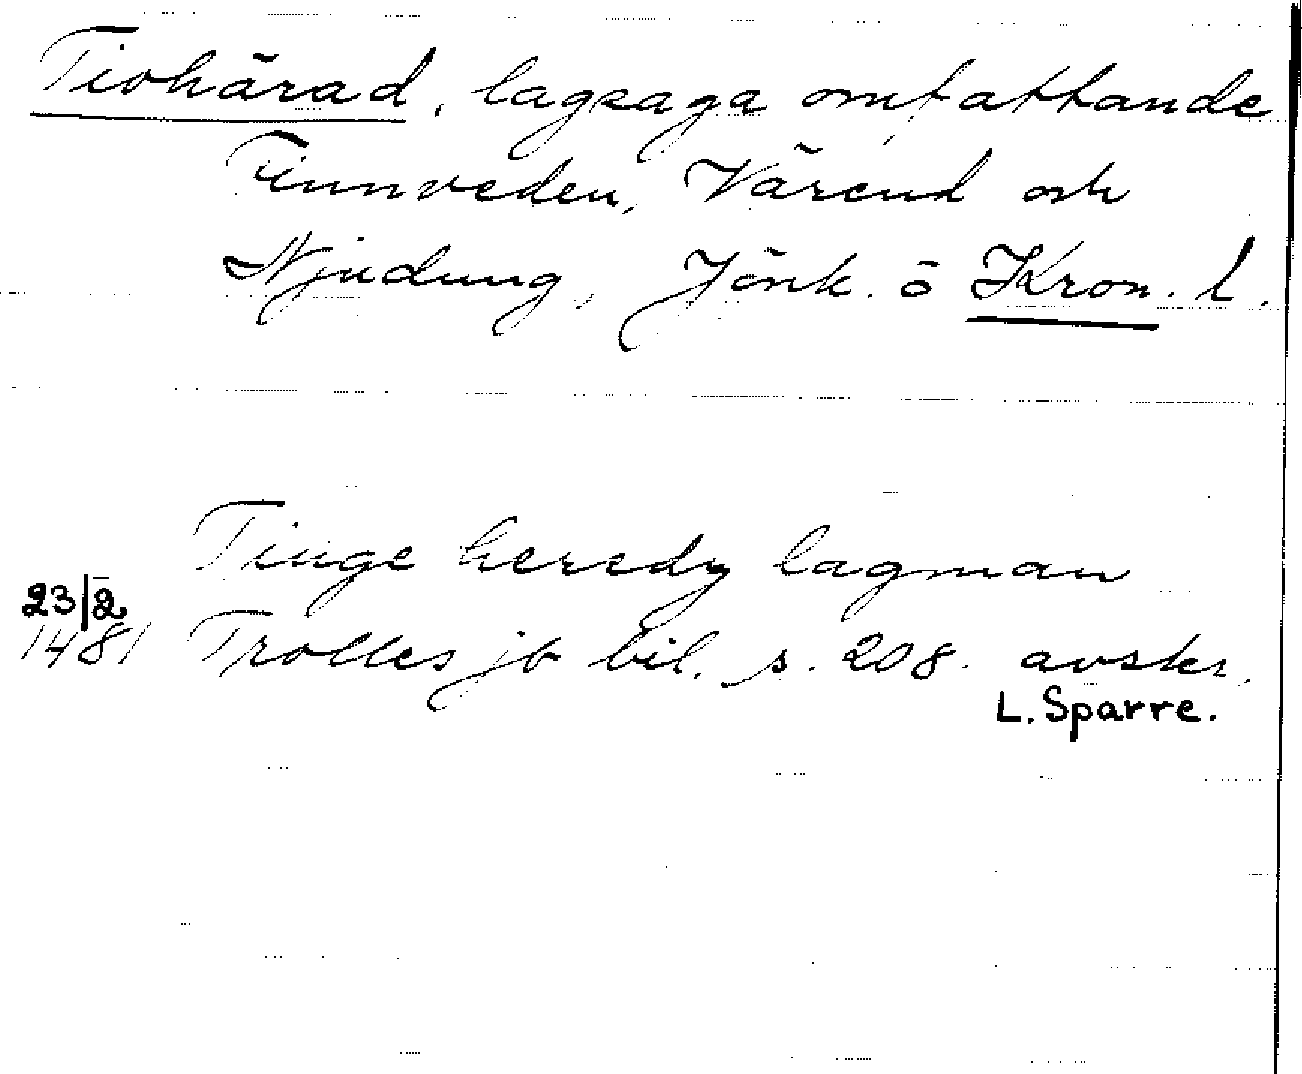 Tiohärad, lagsaga omfattande
Finnveden, Värend och
Njudung, Jönk. o Kron. l.
Tiuge heredz lagman
23/2
1481 Trolles jb bil. s. 208. avskr.
L. Sparre.